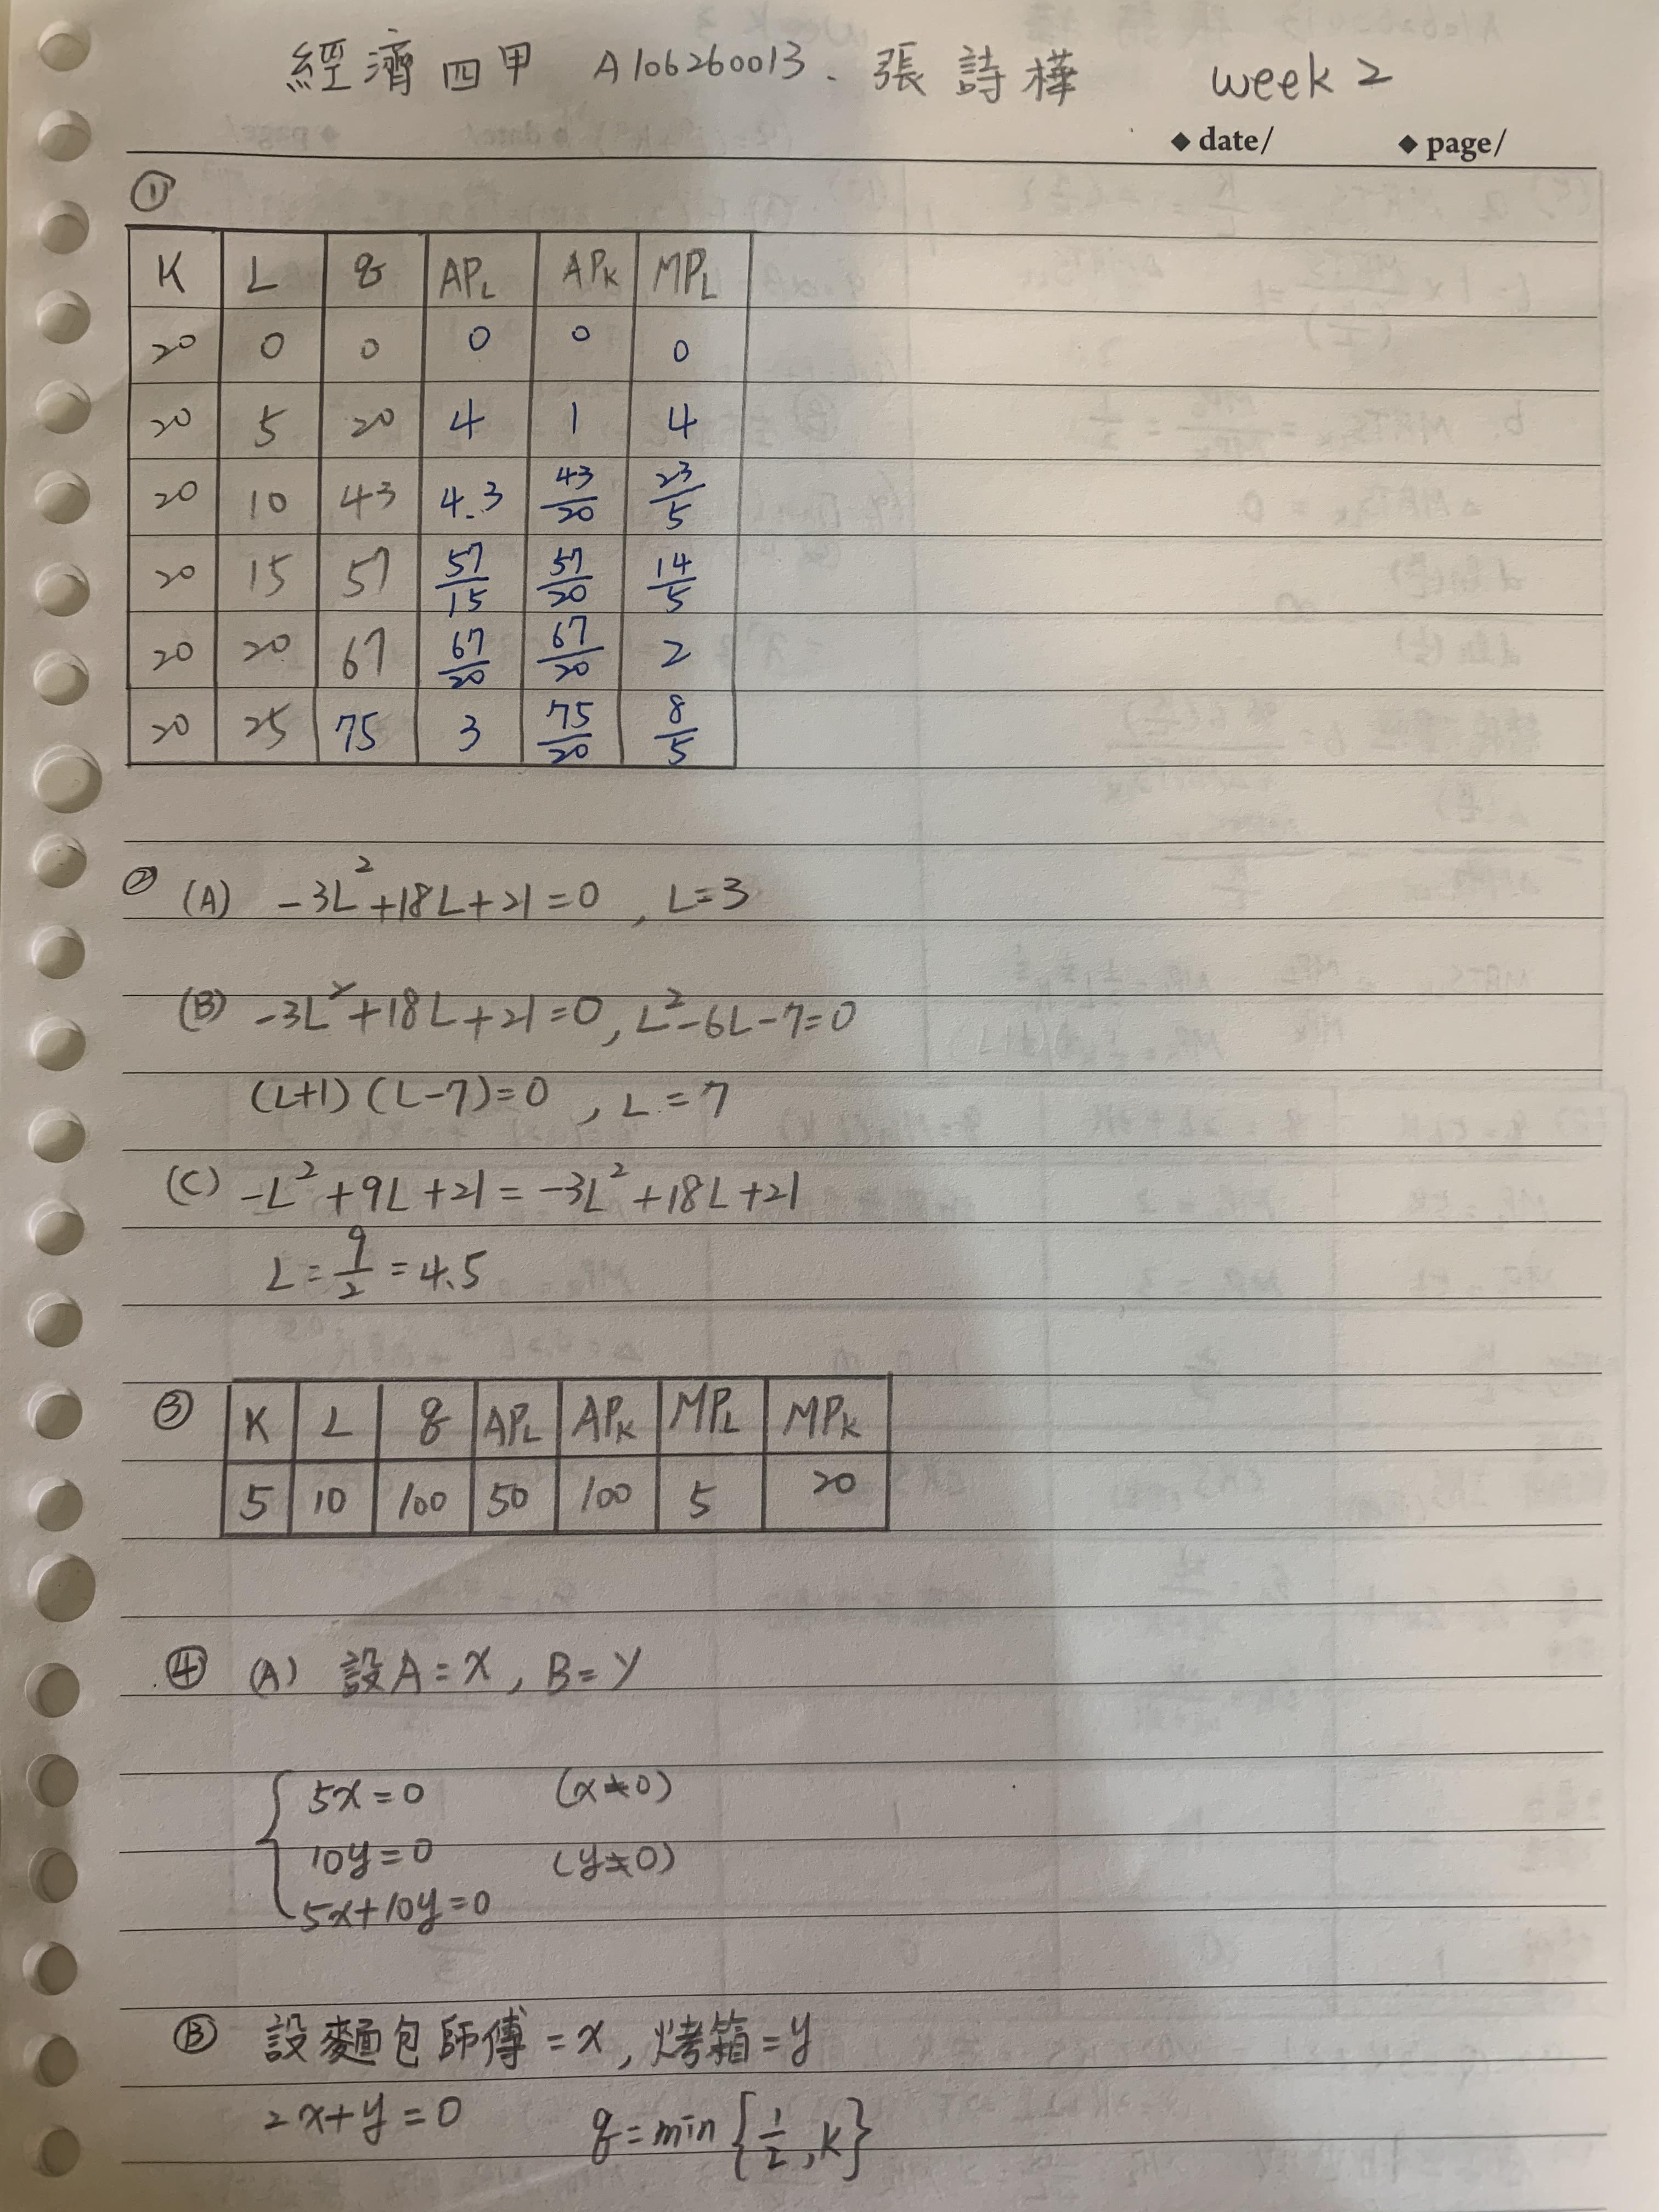 經濟四甲 A106260013. 張詩樺 week 2
◆ date/ ◆ page/
①
K L q APL APK MPL
20 0 0 0 0 0
20 5 20 4 1 4
20 10 43 4.3 43/20 23/5
20 15 57 57/15 57/20 14/5
20 20 67 67/20 67/20 2
20 25 75 3 75/20 8/5
② (A) -3L²+18L+21=0, L=3
(B) -3L²+18L+21=0, L²-6L-7=0
(L+1)(L-7)=0, L=7
(C) -L²+9L+21=-3L²+18L+21
L=9/2=4.5
③ K L q APL APK MPL MPK
5 10 100 50 100 5 20
④ (A) 設A=x, B=y
5x=0 (x≠0)
10y=0 (y≠0)
5x+10y=0
Ⓑ 設麵包師傅=x, 烤箱=y
2x+y=0 q=min{1/2, K}